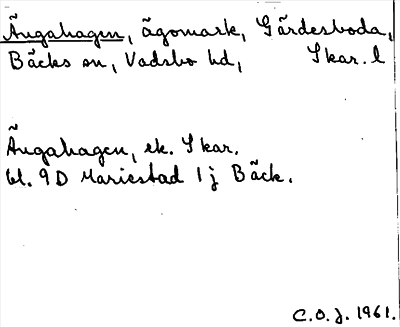 Ängahagen, ägomark, Gärdesboda,
Bäcks sn, Vadsbo hd, Skar. l
Ängahagen, ek. Skar.
bl. 9D Mariestad 1j Bäck.
C.O.J. 1961.